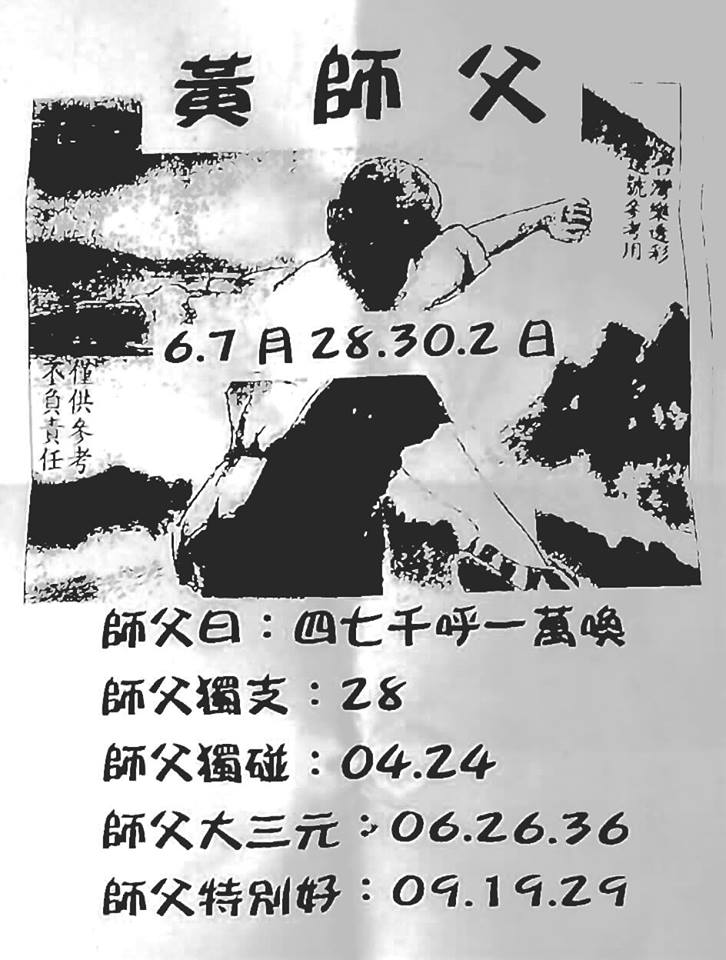 黃師父
台灣樂透彩
選號參考用
6.7月28.30.2日
僅供參考
不負責任
師父曰：四七千呼一萬喚
師父獨支：28
師父獨碰：04.24
師父大三元：06.26.36
師父特別好：09.19.29